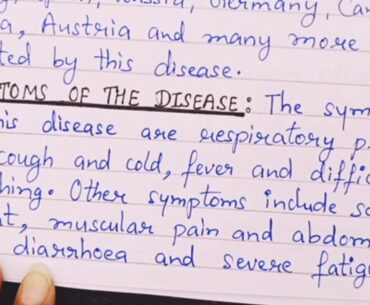 Russia, Germany, Can
a, Austria and many more
ted by this disease.
TOMS OF THE DISEASE: The sym
is disease are respiratory p
cough and cold, fever and diffic
hing. Other symptoms include so
t, muscular pain and abdom
diarrhoea and severe fatig